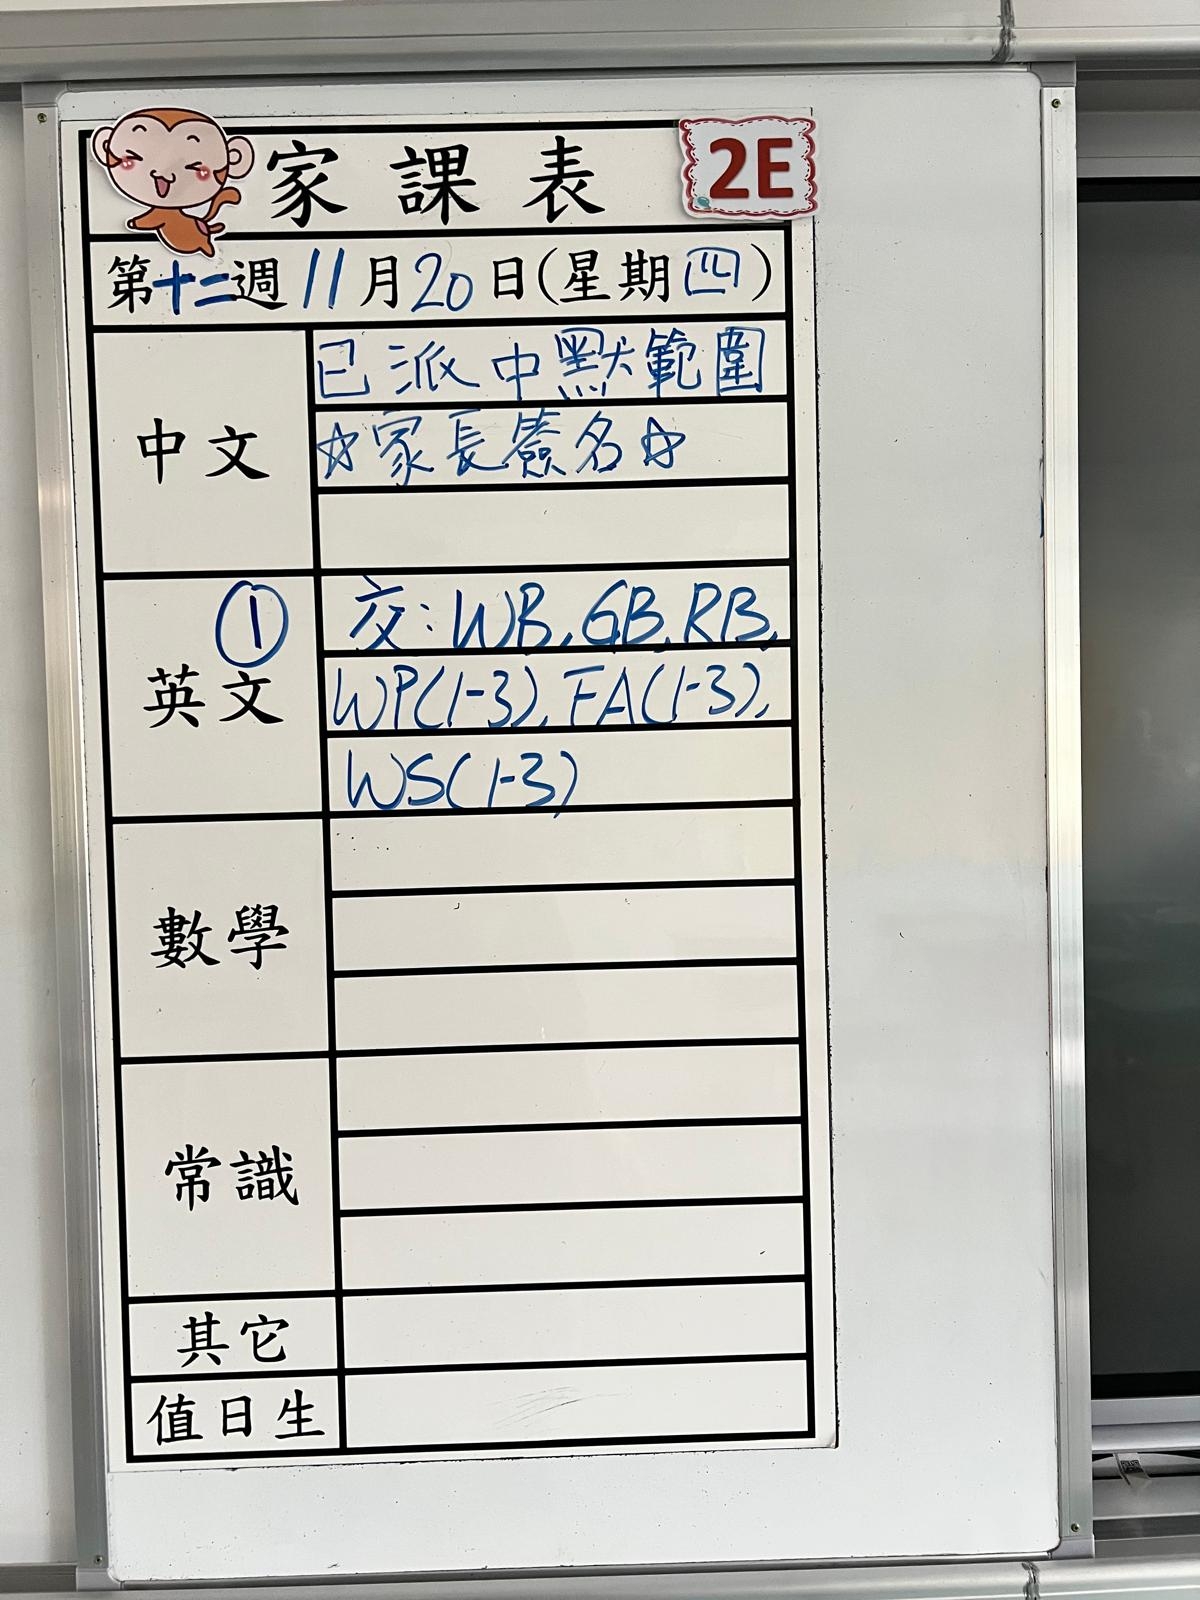 家課表 2E
第十二週 11月20日(星期四)
中文
已派中默範圍
☆家長簽名☆
英文 ①
交: WB, GB, RB,
WP(1-3), FA(1-3),
WS(1-3)
數學
常識
其它
值日生